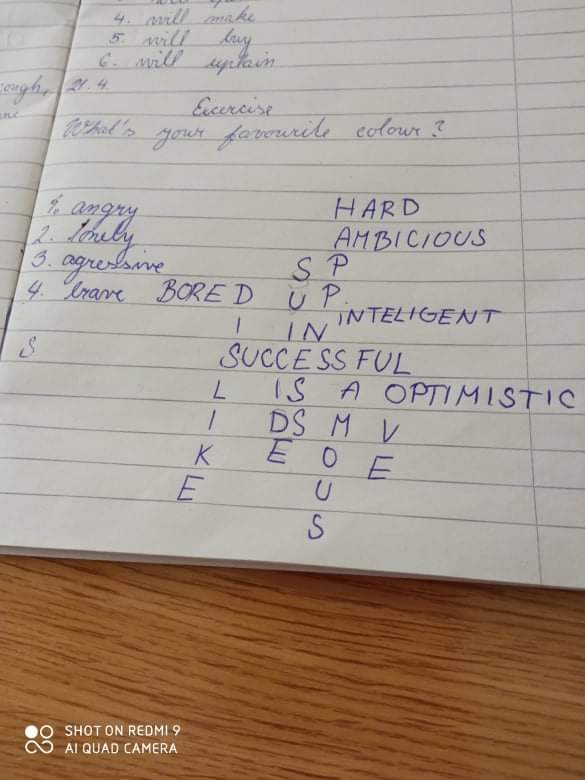 4. will make
5. will buy
6. will
21.4.
Exercise
What's your favourite colour?
1. angry HARD
2. lonely AMBICIOUS
3. agressive S P
4. brave BORED U P.
I IN INTELIGENT
S SUCCESSFUL
L IS A OPTIMISTIC
I DS M V
K E O E
E U
S
SHOT ON REDMI 9
AI QUAD CAMERA